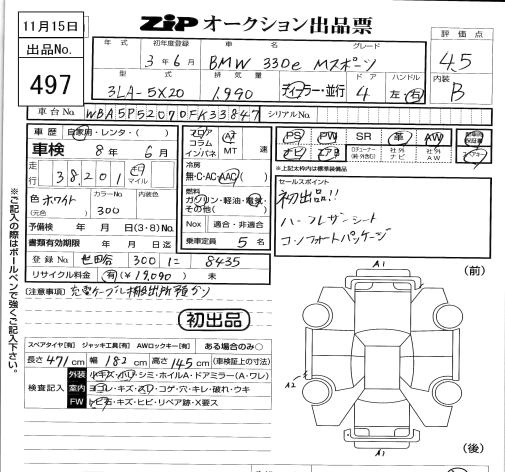 11月15日
出品No.
497
ZIP オークション出品票
年式 初年度登録 車名 グレード
3年6月 BMW 330e Mスポーツ
型式 排気量 ドア ハンドル
3LA-5X20 1,990 ディーラー・並行 4 左・右
評価点
4.5
内装
B
車台No. WBA5P52070FK33847 シリアルNo.
車歴 自家用・レンタ・( )
車検 8年 6月
走行 38,201 キロ マイル
色 ホワイト カラーNo. 300 内装色
(元色)
予備検 年 月 日(3・8)No.
書類有効期限 年 月 日迄
登録No. 世田谷 300 に 8435
リサイクル料金 有(¥17,090) 未
フロア コラム インパネ
AT MT 速
冷房
無・C・AC・AAC
燃料
ガソリン・軽油・電気・その他( )
Nox 適合・非適合
乗車定員 5名
PS PW SR 革 AW
ナビ エアB
※上記太枠内は標準装備品
セールスポイント
初出品!!
ハーフレザーシート
コンフォートパッケージ
[注意事項] 充電ケーブル搬出所預かり
初出品
スペアタイヤ[有] ジャッキ工具[有] AWロックキー[有] ある場合のみ○
長さ 471cm 幅 182cm 高さ 145cm (車検証上の寸法)
検査記入
外装 小キズ・小凹・シミ・ホイルA・ドアミラー(A・ワレ)
室内 ヨゴレ・キズ・スリ・コゲ・穴・キレ・破れ・ウキ
FW トビ石・キズ・ヒビ・リペア跡・X要ス
A1
(前)
A2
A1
(後)
※ご記入の際はボールペンで強くご記入下さい。